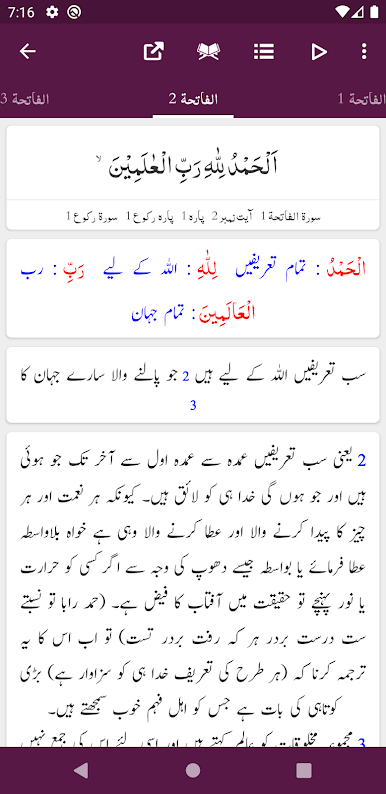 7:16
الفاتحة 1
الفاتحة 2
الفاتحة 3
اَلْحَمْدُ لِلّٰهِ رَبِّ الْعٰلَمِیْنَ ۙ
سورۃ الفاتحة 1 آیت نمبر 2 پارہ 1 پارہ رکوع 1 سورۃ رکوع 1
الْحَمْدُ : تمام تعریفیں لِلّٰهِ : اللہ کے لیے رَبِّ : رب
الْعَالَمِينَ : تمام جہان
سب تعریفیں اللہ کے لیے ہیں 2 جو پالنے والا سارے جہان کا
3
2 یعنی سب تعریفیں عمدہ سے عمدہ اول سے آخر تک جو ہوئی
ہیں اور جو ہوں گی خدا ہی کو لائق ہیں۔ کیونکہ ہر نعمت اور ہر
چیز کا پیدا کرنے والا اور عطا کرنے والا وہی ہے خواہ بلاواسطہ
عطا فرمائے یا بواسطہ جیسے دھوپ کی وجہ سے اگر کسی کو حرارت
یا نور پہنچے تو حقیقت میں آفتاب کا فیض ہے۔ (حمد رابا تو نسبتے
ست درست بردر ہر کہ رفت بردر تست) تو اب اس کا یہ
ترجمہ کرنا کہ (ہر طرح کی تعریف خدا ہی کو سزاوار ہے) بڑی
کوتاہی کی بات ہے جس کو اہل فہم خوب سمجھتے ہیں۔
3 مجموعہ مخلوقات کو عالم کہتے ہیں اور اسی لئے اس کی جمع نہیں